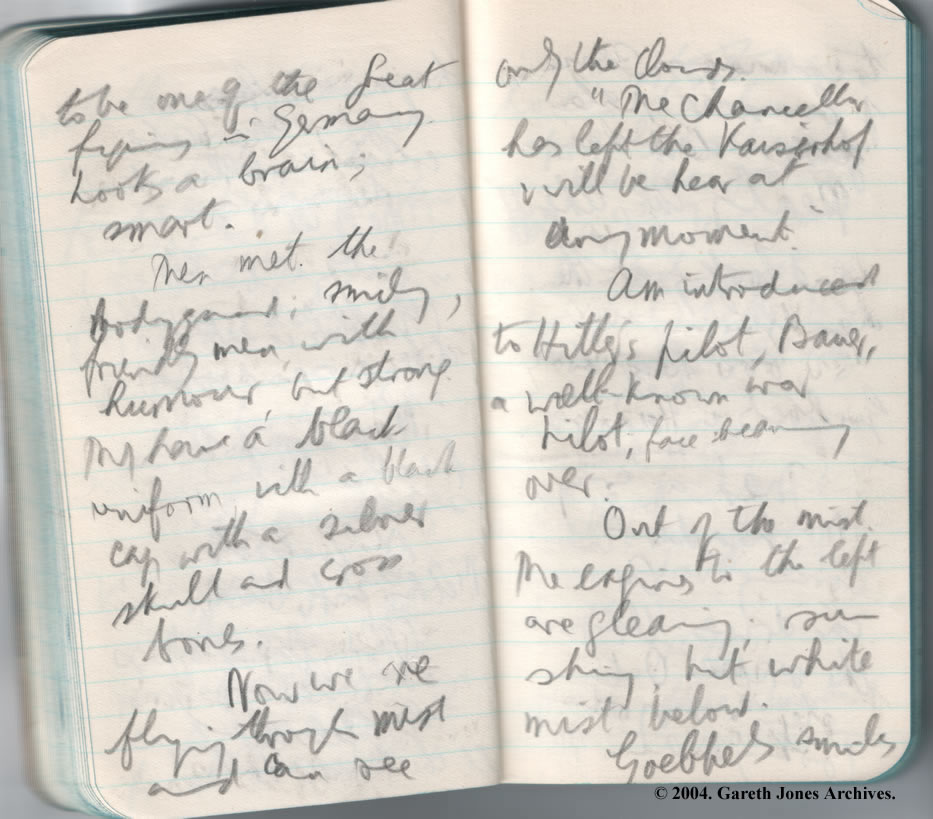 to be one of the great
figures in Germany.
Looks a brain;
smart.
Then met the
Bodyguard; smiling,
friendly men, with
humour, but strong.
They have a black
uniform with a black
cap with a silver
skull and cross
bones.
Now we are
flying through mist
and can see
only the clouds.
"The Chancellor
has left the Kaiserhof
will be hear at
any moment."
Am introduced
to Hitler's pilot, Bauer,
a well-known war
pilot, face beaming
over.
Out of the mist.
The engines to the left
are gleaming; sun
shining but white
mist below.
Goebbels smiles
© 2004. Gareth Jones Archives.